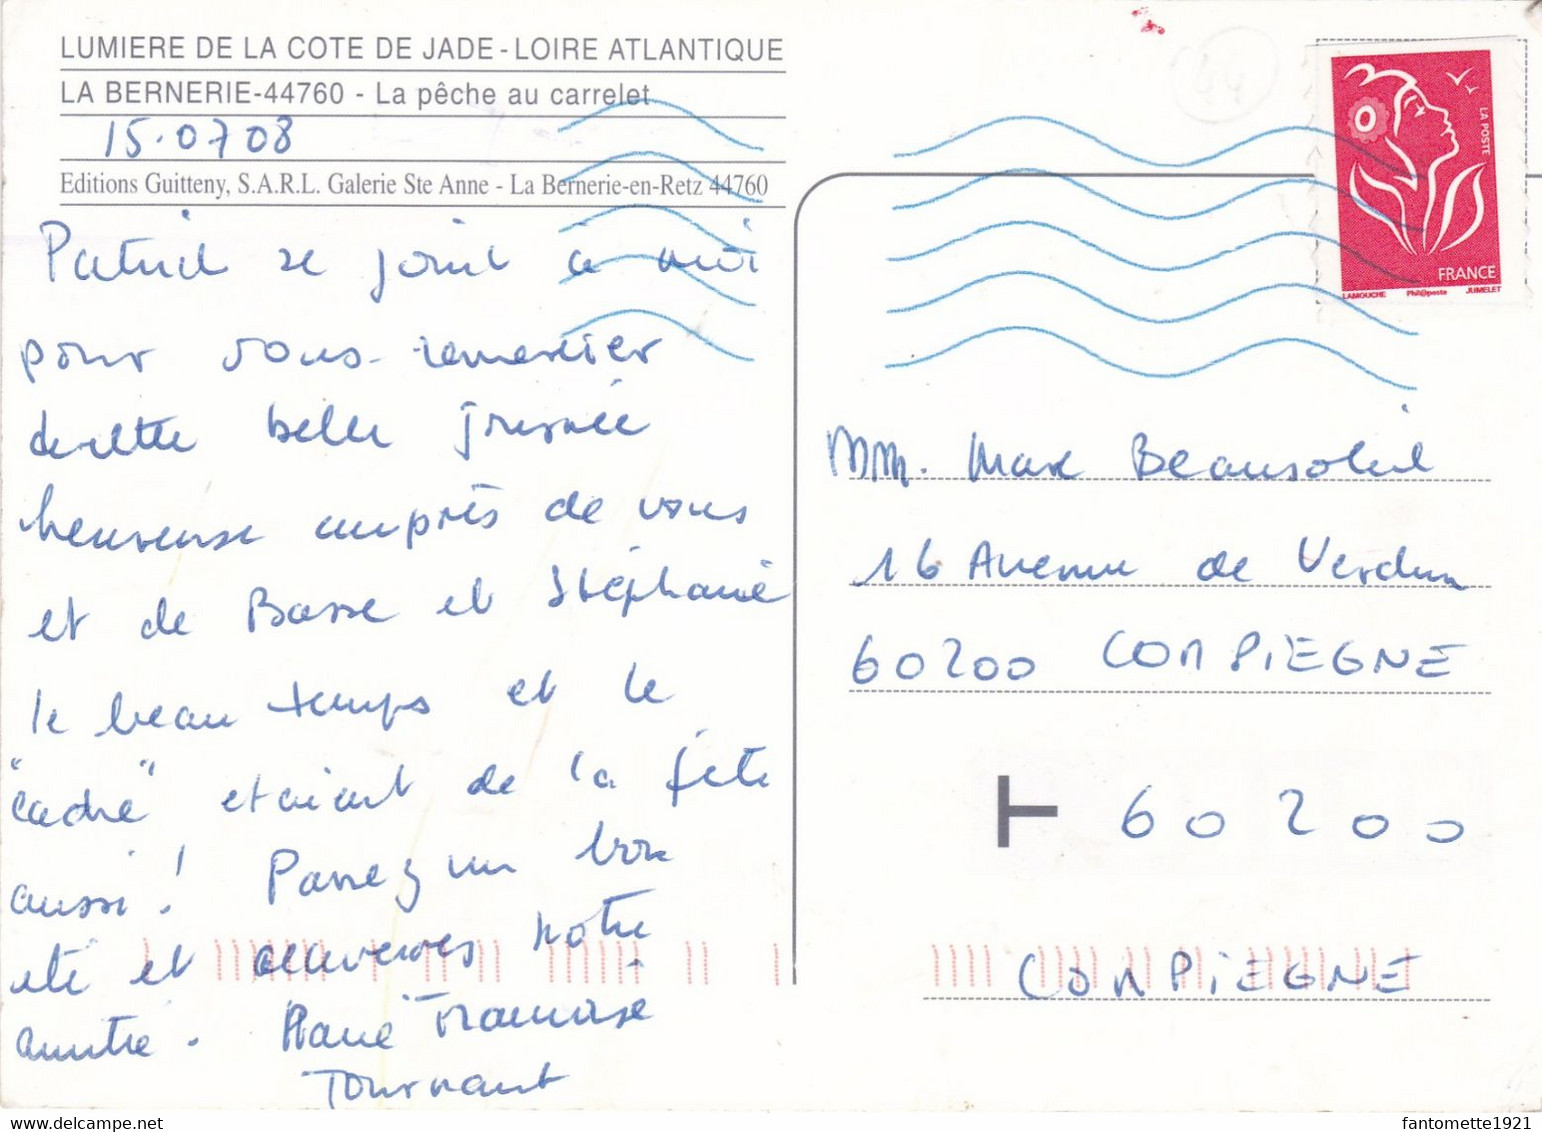 LUMIERE DE LA COTE DE JADE - LOIRE ATLANTIQUE
LA BERNERIE-44760 - La pêche au carrelet
15.0708
Editions Guitteny, S.A.R.L. Galerie Ste Anne - La Bernerie-en-Retz 44760
se joint à moi
pour vous remercier
de cette belle journée
heureuse auprès de vous
et de et Stéphanie
le beau temps et le
"cadre" etaient de la fête
aussi ! Passez un bon
eté et notre
amitié. Marie Françoise
Tournant
LA POSTE
FRANCE
LAMOUCHE Phil@poste JUMELET
44
MM. Max Beausoleil
16 Avenue de Verdun
60200 COMPIEGNE
T 60200
COMPIEGNE
fantomette1921